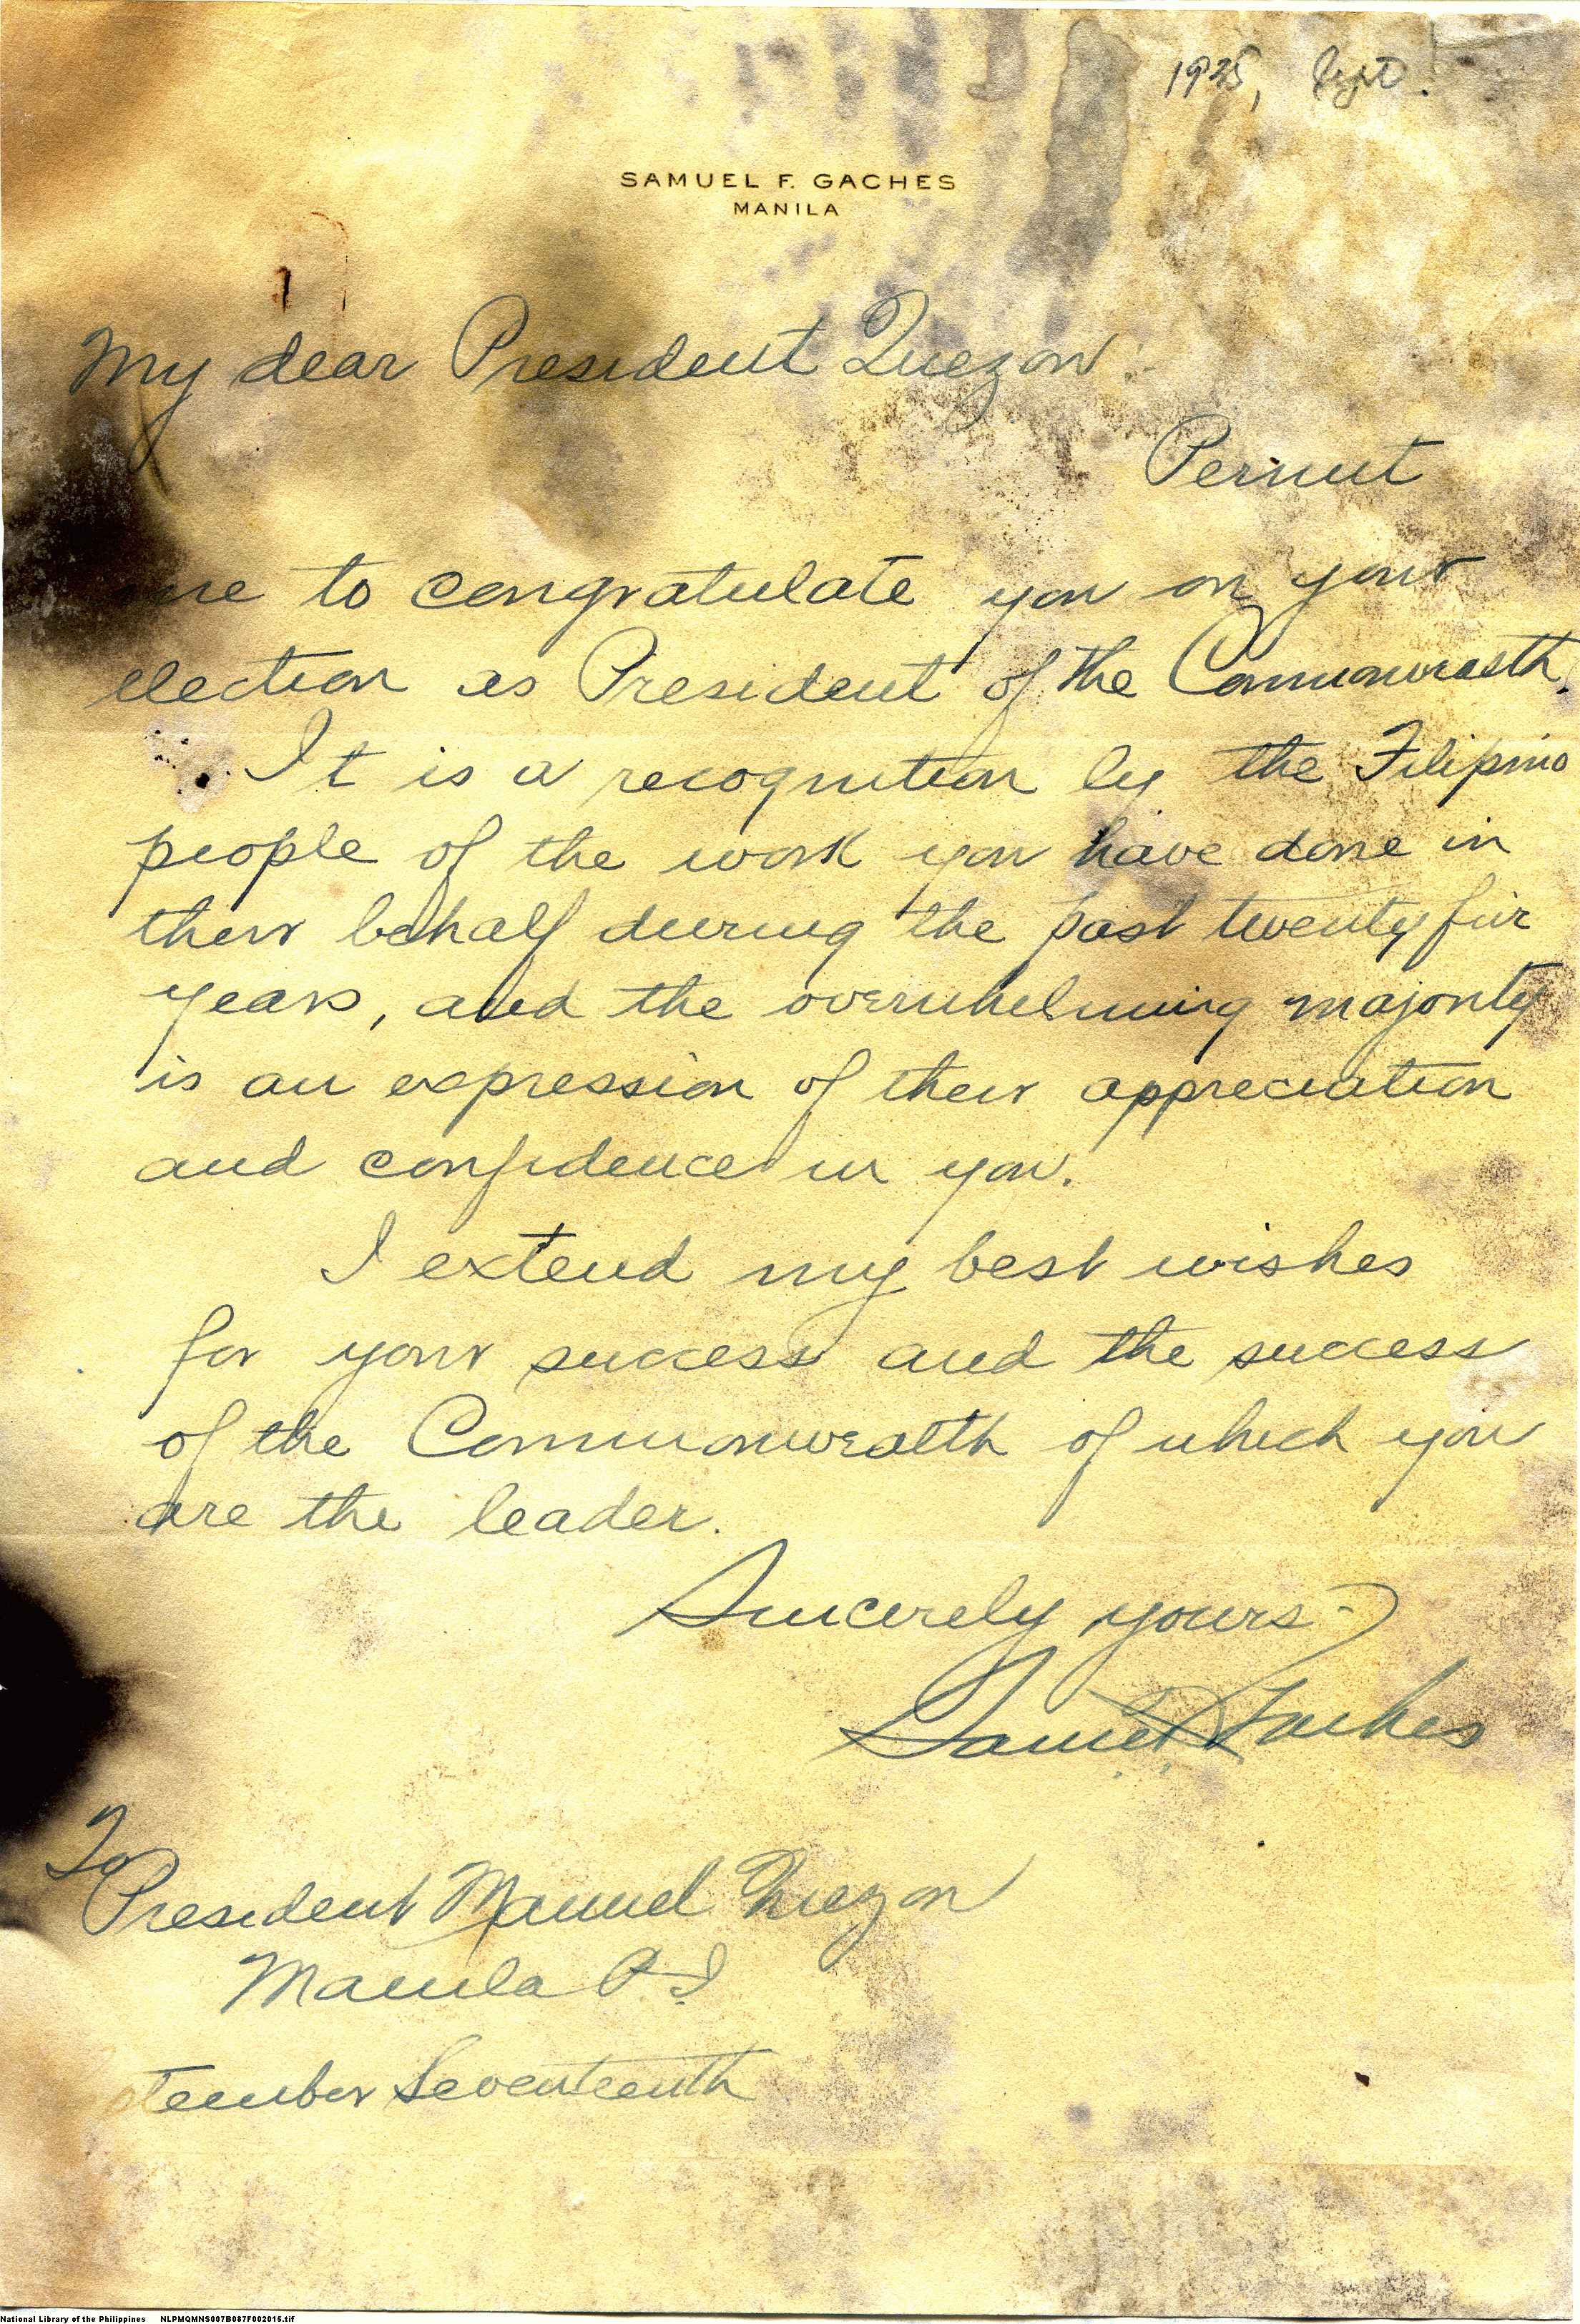 1935, Sept.
SAMUEL F. GACHES
MANILA
My dear President Quezon:
Permit
me to congratulate you on your
election as President of the Commonwealth.
It is a recognition by the Filipino
people of the work you have done in
their behalf during the past twenty five
years, and the overwhelming majority
is an expression of their appreciation
and confidence in you.
I extend my best wishes
for your success and the success
of the Commonwealth of which you
are the leader.
Sincerely yours
Samuel Gaches
To
President Manuel Quezon
Manila P.I.
tember Seventeenth
National Library of the Philippines NLPMQMNS007B087F002015.tif